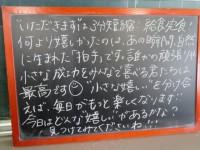 いただきますは3分短縮 給食完食!
何より嬉しかったのは、あの瞬間、自然
に生まれた“拍手”です。誰かの頑張りや
小さな成功をみんなで喜べる君たちは
最高です。“小さな嬉しい”を分け合
えば、毎日がもっと楽しくなります
今日はどんな“嬉しい”があるかな?
見つけてみてくださいね!!